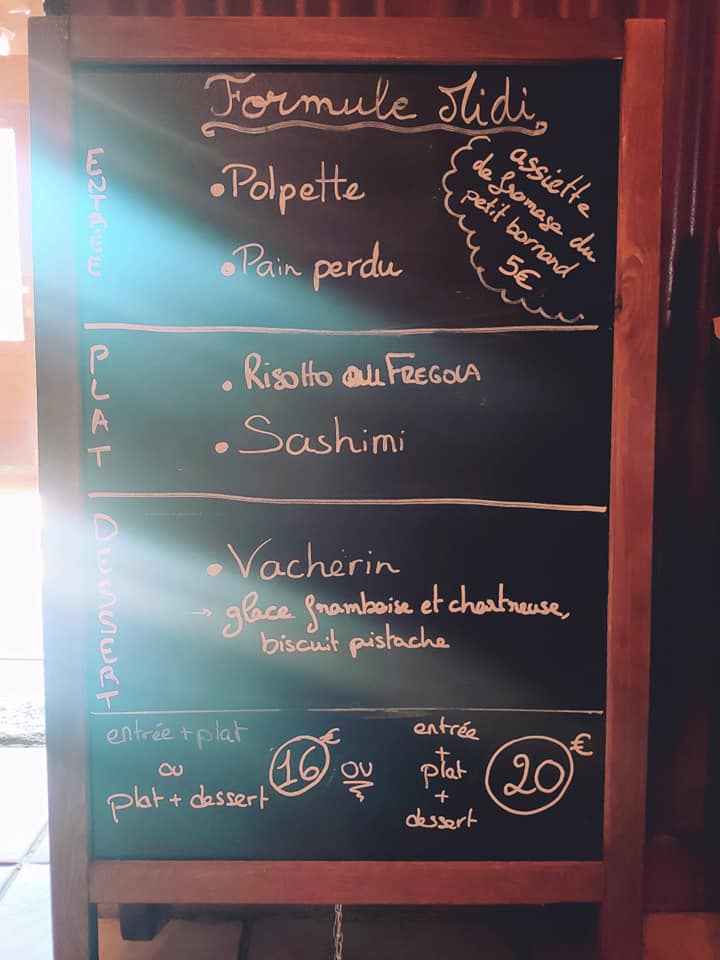 Formule Midi
ENTREE
• Polpette
• Pain perdu
assiette
de fromage du
petit bornand
5€
PLAT
• Risotto FREGOLA
• Sashimi
DESSERT
• Vacherin
→ glace framboise et chartreuse,
biscuit pistache
entrée + plat
ou
plat + dessert
16€
ou
entrée
+
plat
+
dessert
20€